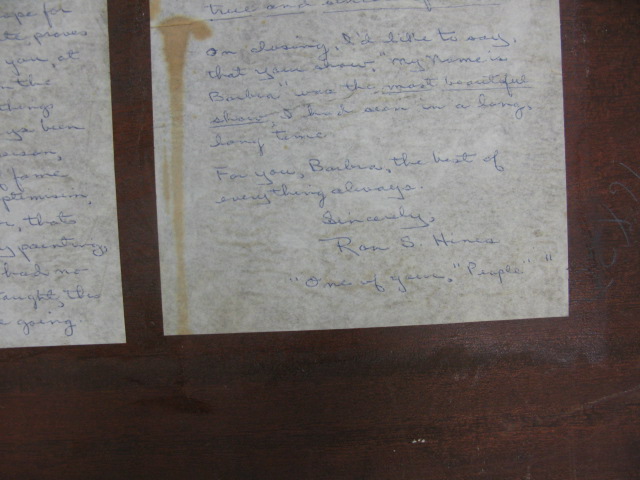 ope for
proves
you, at
in the
things
ys been
fame
optimism,
, that's
painting,
had no
taught, this
going.
true and
On closing, I'd like to say,
that your show, "My Name is
Barbra" was the most beautiful
show I had seen in a long,
long time.
For you, Barbra, the best of
everything always.
Sincerely,
Ron S. Hines
"One of your, "People" "